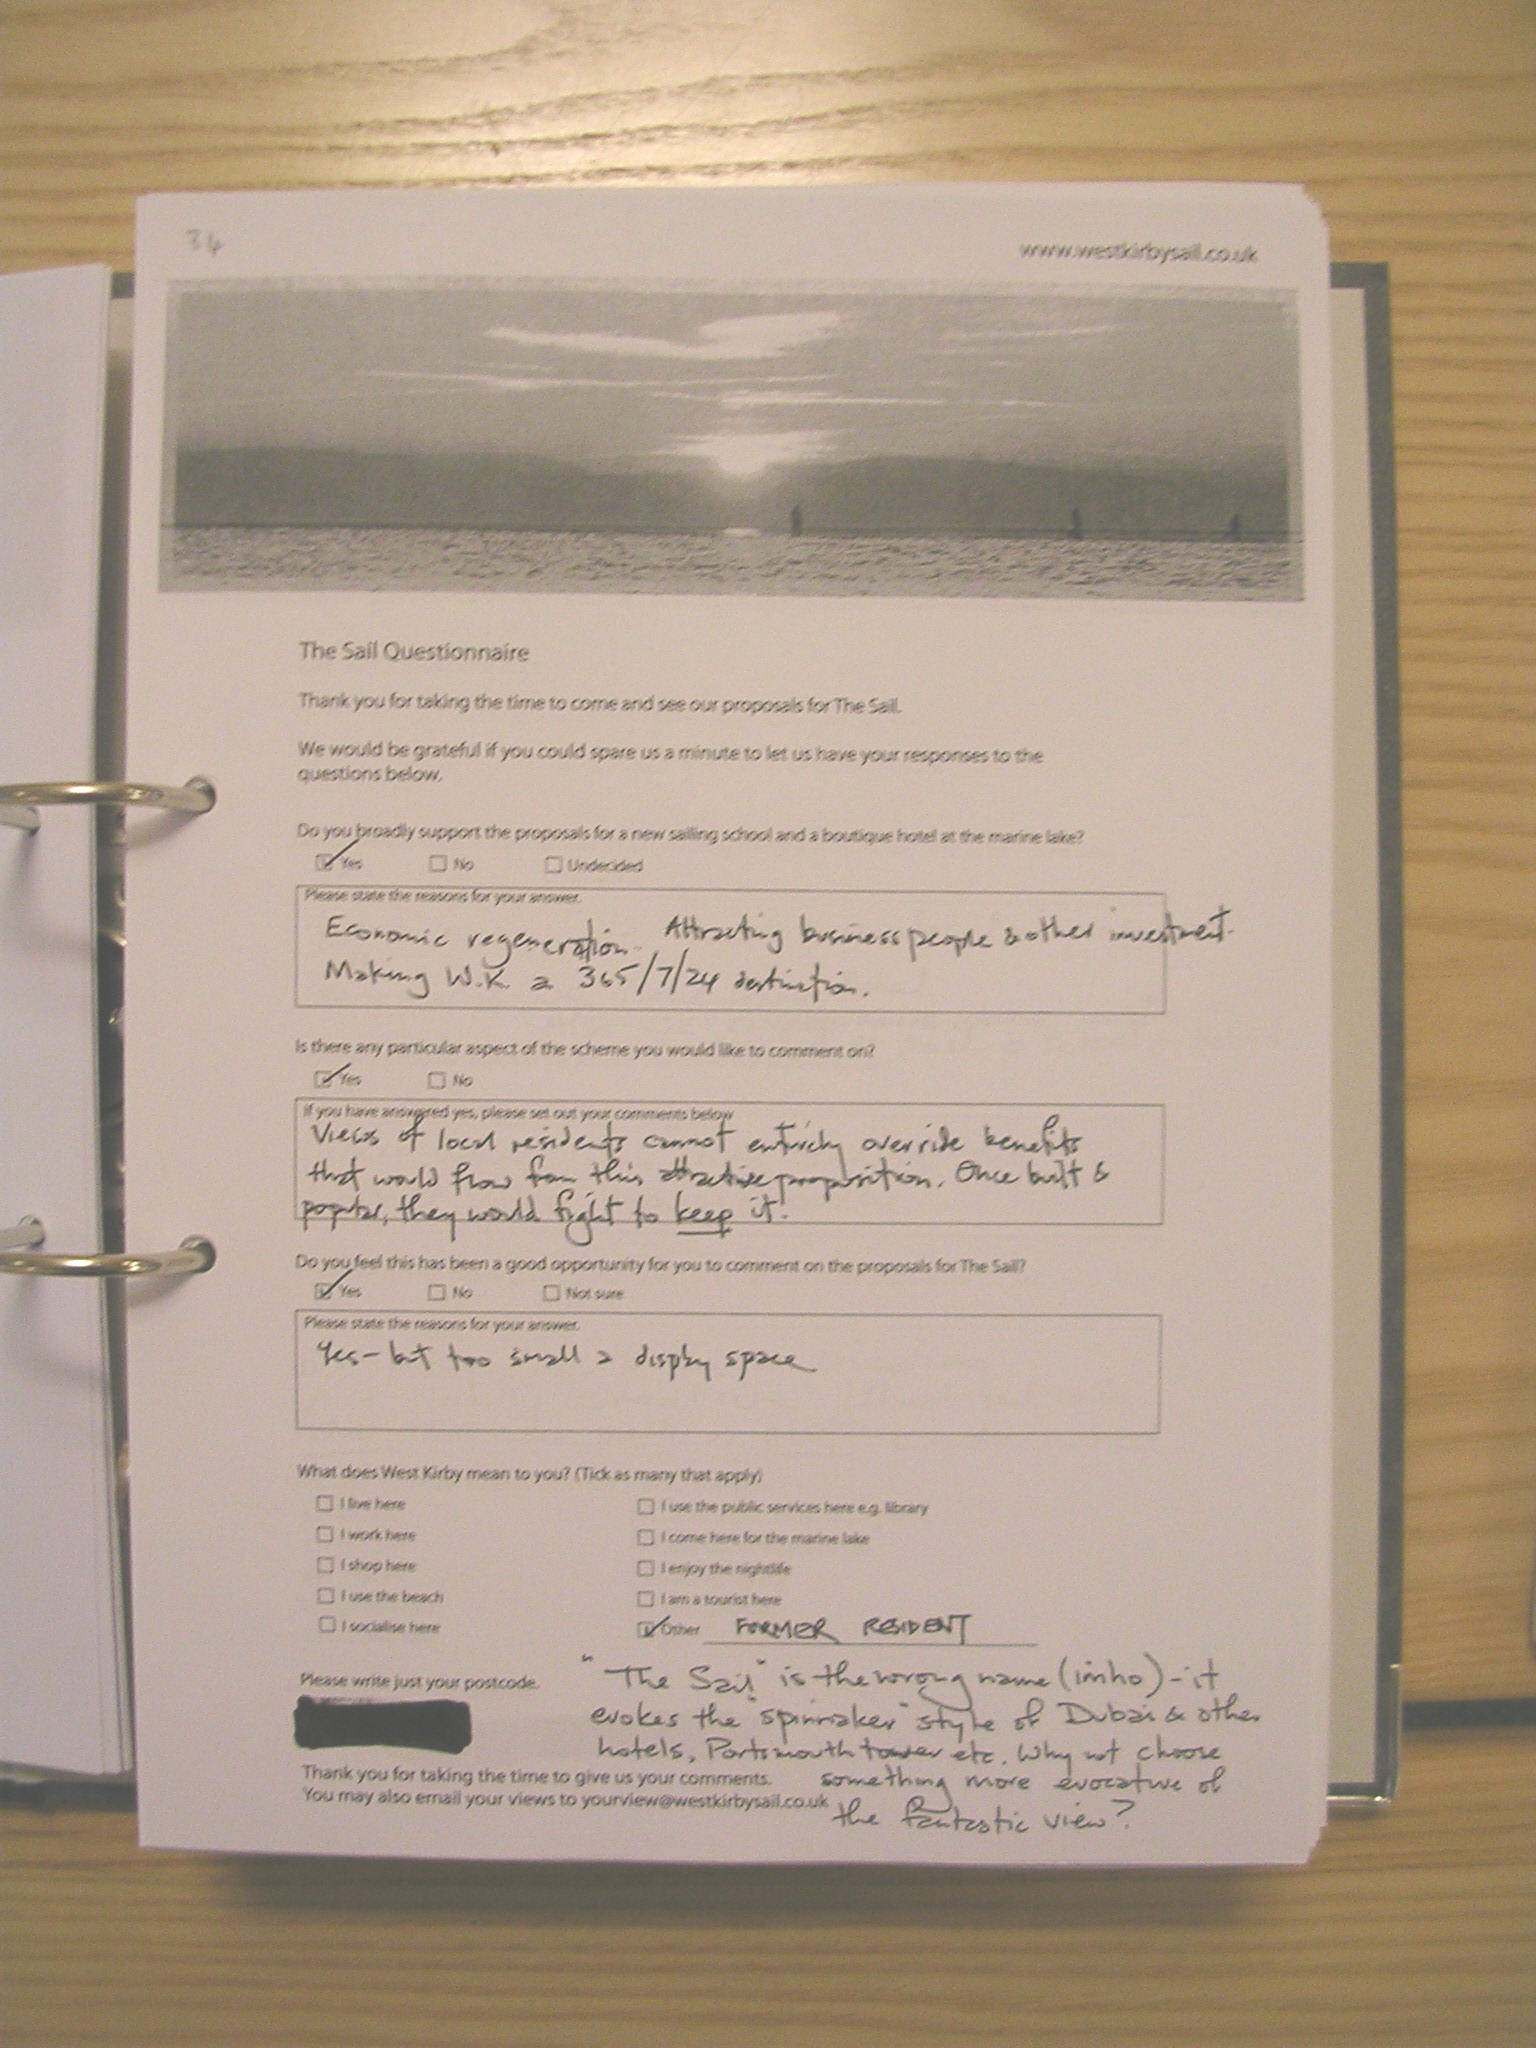 34
www.westkirbysail.co.uk
The Sail Questionnaire
Thank you for taking the time to come and see our proposals for The Sail.
We would be grateful if you could spare us a minute to let us have your responses to the
questions below.
Do you broadly support the proposals for a new sailing school and a boutique hotel at the marine lake?
Yes No Undecided
Please state the reasons for your answer.
Economic regeneration. Attracting business people & other investment.
Making W.K. a 365/7/24 destination.
Is there any particular aspect of the scheme you would like to comment on?
Yes No
If you have answered yes, please set out your comments below
Views of local residents cannot entirely override benefits
that would flow from this attractive proposition. Once built &
popular, they would fight to keep it!
Do you feel this has been a good opportunity for you to comment on the proposals for The Sail?
Yes No Not sure
Please state the reasons for your answer.
Yes - but too small a display space
What does West Kirby mean to you? (Tick as many that apply)
I live here I use the public services here e.g. library
I work here I come here for the marine lake
I shop here I enjoy the nightlife
I use the beach I am a tourist here
I socialise here Other FORMER RESIDENT
Please write just your postcode.
"The Sail" is the wrong name (imho) - it
evokes the "spinnaker" style of Dubai & other
hotels, Portsmouth tower etc. Why not choose
something more evocative of
the fantastic view?
Thank you for taking the time to give us your comments.
You may also email your views to yourview@westkirbysail.co.uk